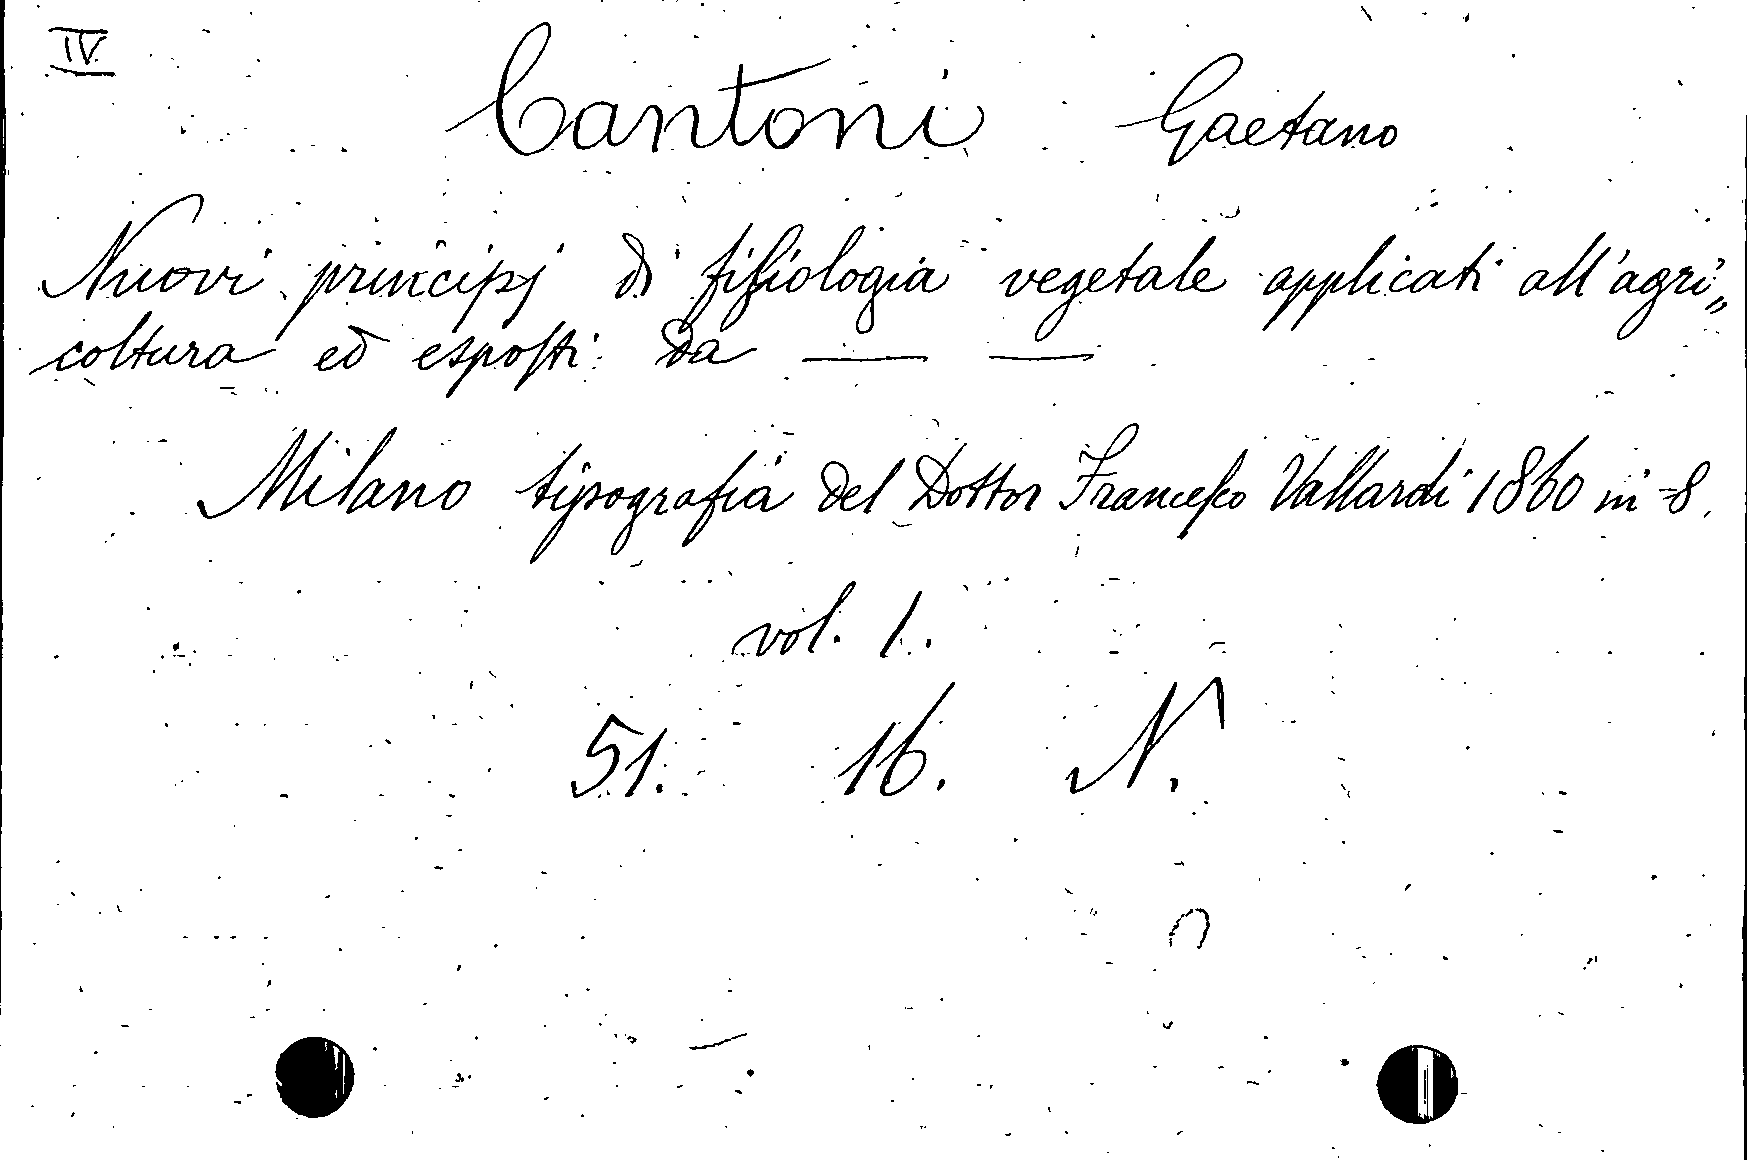 IV
Cantoni Gaetano
Nuovi principj di fisiologia vegetale applicati all'agri„
coltura ed esposti da — —
Milano tipografia del Dottor Francesco Vallardi 1860 in-8.
vol. 1.
51. 16. N.